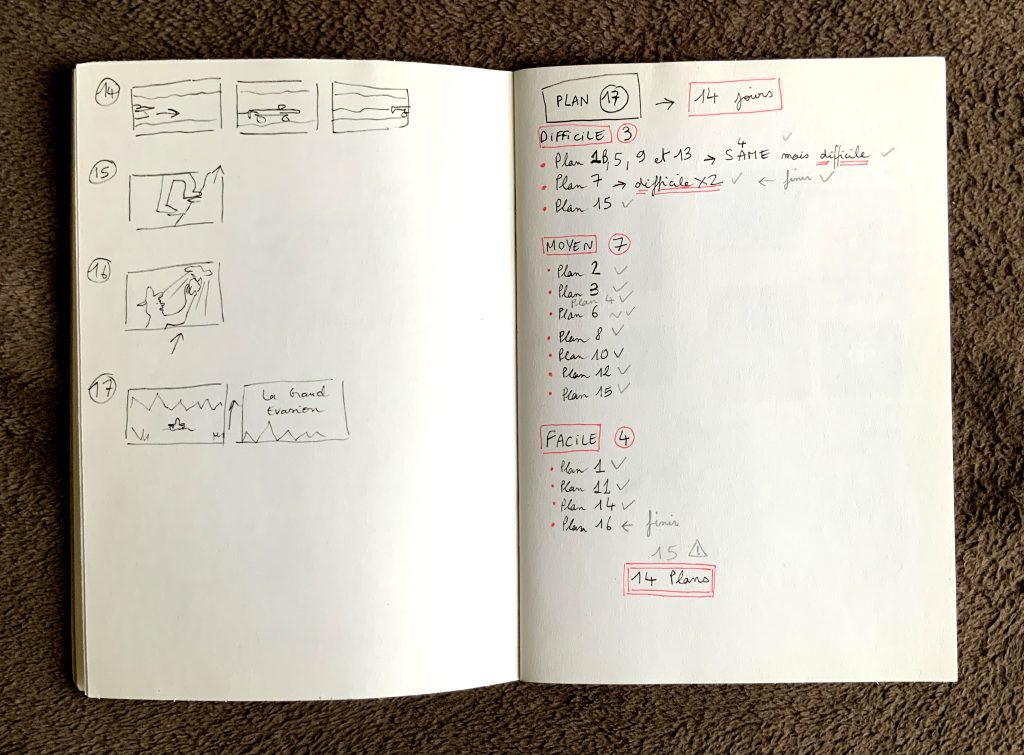 14
15
16
17
La Grand
Evasion
PLAN 17 → 14 jours
DIFFICILE 3
4
• Plan 1B, 5, 9 et 13 → SAME mais difficile ✓
• Plan 7 → difficile X2 ✓ ← finir ✓
• Plan 15 ✓
MOYEN 7
• Plan 2 ✓
• Plan 3 ✓
Plan 4 ✓
• Plan 6 ~ ✓
• Plan 8 ✓
• Plan 10 ✓
• Plan 12 ✓
• Plan 15 ✓
FACILE 4
• Plan 1 ✓
• Plan 11 ✓
• Plan 14 ✓
• Plan 16 ← finir
15 ⚠
14 Plans